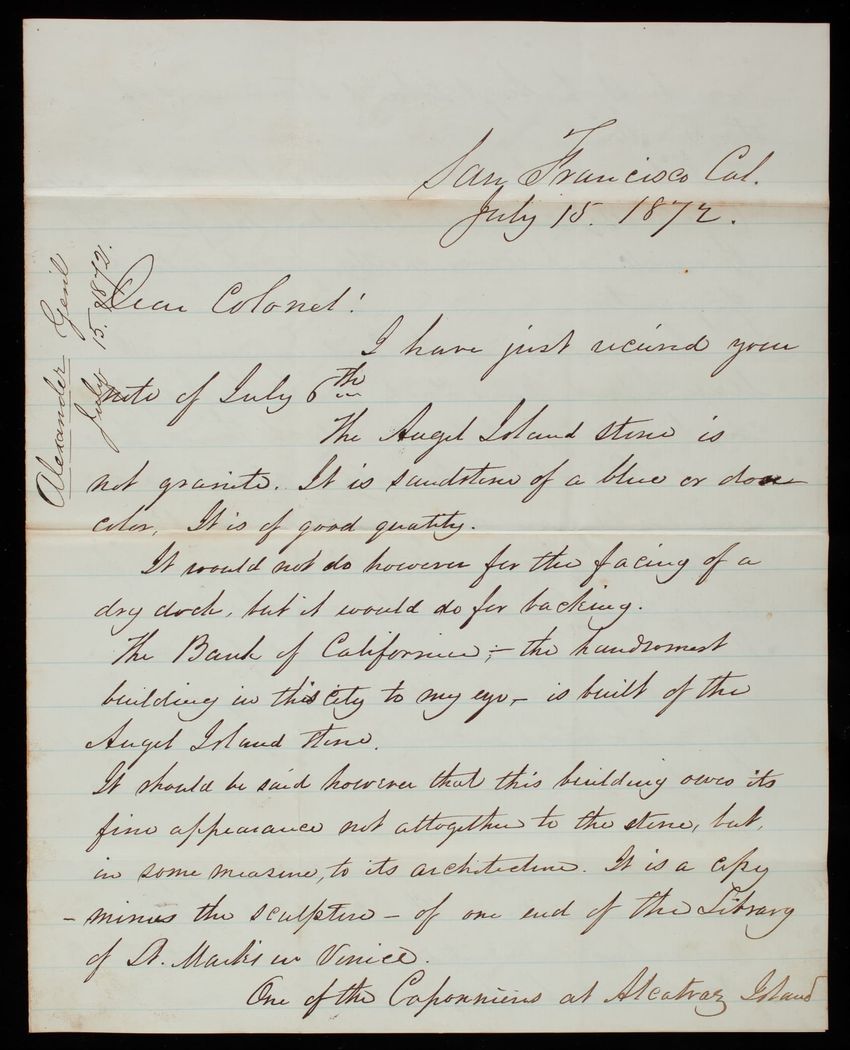 San Francisco Cal.
July 15. 1872.
Alexander Genl
July 15. 1872.
Dear Colonel!
I have just received your
note of July 6th
The Angel Island stone is
not granite. It is sandstone of a blue or dove
color. It is of good quality.
It would not do however for the facing of a
dry dock, but it would do for backing.
The Bank of California, - the handsomest
building in this city to my eye, - is built of the
Angel Island stone.
It should be said however that this building owes its
fine appearance not altogether to the stone, but,
in some measure, to its architecture. It is a copy
- minus the sculpture - of one end of the Library
of St. Marks in Venice.
One of the Caponniers at Alcatraz Island